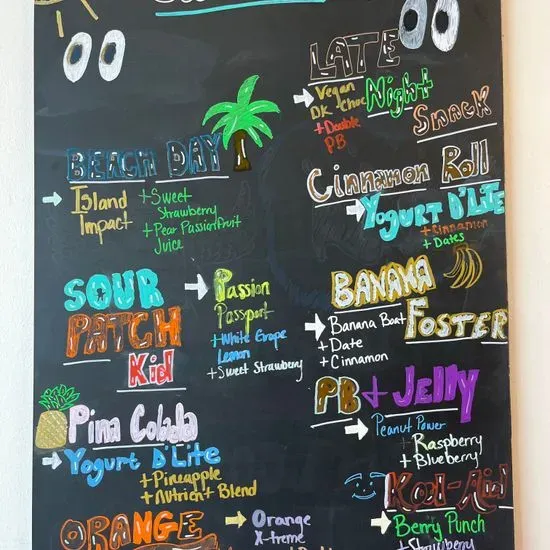 BEACH DAY
Island
Impact
+ Sweet
Strawberry
+ Pear Passionfruit
Juice
SOUR
PATCH
Kid
Passion
Passport
+ White Grape
Lemon
+ Sweet Strawberry
Pina Colada
Yogurt D'Lite
+ Pineapple
+ Nutrient Blend
ORANGE
Orange
X-treme
LATE
Night
Snack
Vegan
DK Choc
+ Double
PB
Cinnamon Roll
Yogurt D'Lite
+ Cinnamon
+ Dates
BANANA
FOSTER
Banana Boat
+ Date
+ Cinnamon
PB + Jelly
Peanut Power
+ Raspberry
+ Blueberry
Kool-Aid
Berry Punch
+ Strawberry